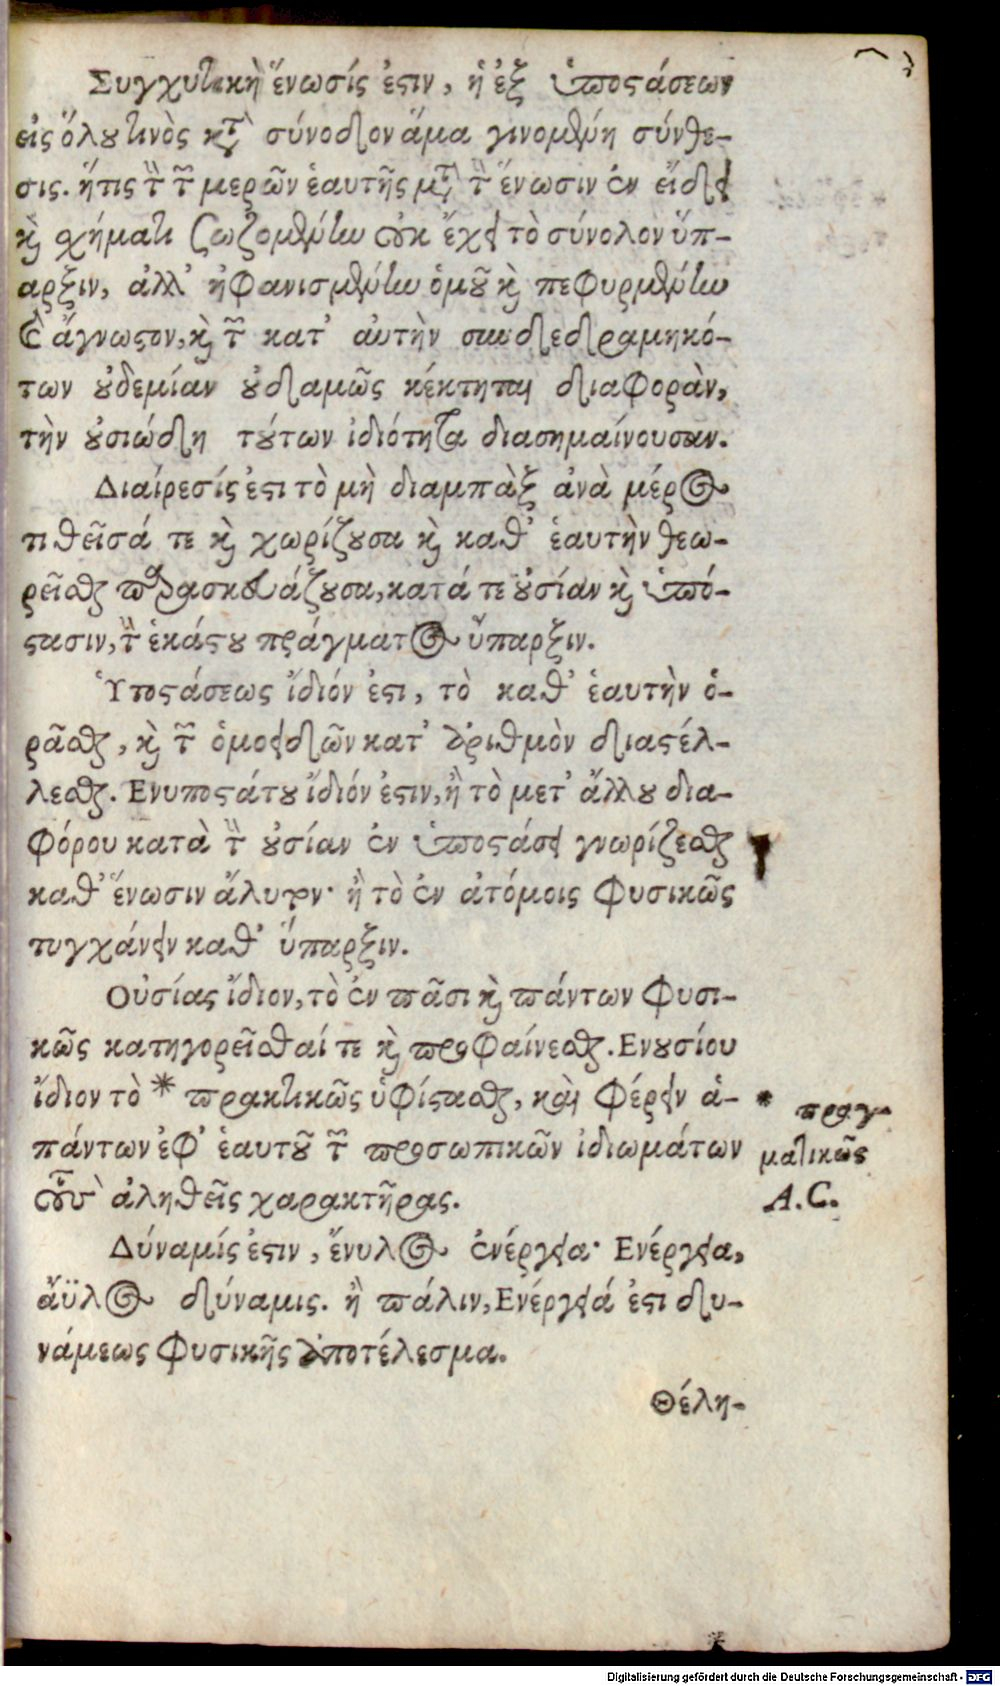 Συγχυτικὴ ἕνωσίς ἐστιν, ἡ ἐξ ὑποστάσεων
εἰς ὅλου τινὸς κατὰ σύνοδον ἅμα γινομένη σύνθε-
σις. ἥτις τὴν τῶν μερῶν ἑαυτῆς μετὰ τὴν ἕνωσιν ἐν εἴδει
καὶ σχήματι σωζομένην οὐκ ἔχει τὸ σύνολον ὕπ-
αρξιν, ἀλλ' ἠφανισμένην ὁμοῦ καὶ πεφυρμένην
καὶ ἄγνωστον, καὶ τῶν κατ' αὐτὴν συνδεδραμηκό-
των οὐδεμίαν οὐδαμῶς κέκτηται διαφορὰν,
τὴν οὐσιώδη τούτων ἰδιότητα διασημαίνουσαν.
Διαίρεσίς ἐστι τὸ μὴ διαμπὰξ ἀνὰ μέρος
τιθεῖσά τε καὶ χωρίζουσα καὶ καθ' ἑαυτὴν θεω-
ρεῖσθαι παρασκευάζουσα, κατά τε οὐσίαν καὶ ὑπό-
στασιν, τὴν ἑκάστου πράγματος ὕπαρξιν.
Ὑποστάσεως ἴδιόν ἐστι, τὸ καθ' ἑαυτὴν ὁ-
ρᾶσθαι, καὶ τῶν ὁμοειδῶν κατ' ἀριθμὸν διαστέλ-
λεσθαι. Ενυποστάτου ἴδιόν ἐστιν, ἢ τὸ μετ' ἄλλου δια-
φόρου κατὰ τὴν οὐσίαν ἐν ὑποστάσει γνωρίζεσθαι
καθ' ἕνωσιν ἄλυτον· ἢ τὸ ἐν ἀτόμοις φυσικῶς
τυγχάνειν καθ' ὕπαρξιν.
Οὐσίας ἴδιον, τὸ ἐν πᾶσι καὶ πάντων φυσι-
κῶς κατηγορεῖσθαί τε καὶ προφαίνεσθαι. Ενουσίου
ἴδιον τὸ * πρακτικῶς ὑφίστασθαι, καὶ φέρειν ἁ-
πάντων ἐφ' ἑαυτοῦ τῶν προσωπικῶν ἰδιωμάτων
τοὺς ἀληθεῖς χαρακτῆρας.
* πραγ-
ματικῶς
A.C.
Δύναμίς ἐστιν, ἔνυλος ἐνέργεια· Ενέργεια,
ἄϋλος δύναμις. ἢ πάλιν, Ενέργειά ἐστι δυ-
νάμεως φυσικῆς ἀποτέλεσμα.
Θέλη-
Digitalisierung gefördert durch die Deutsche Forschungsgemeinschaft - DFG